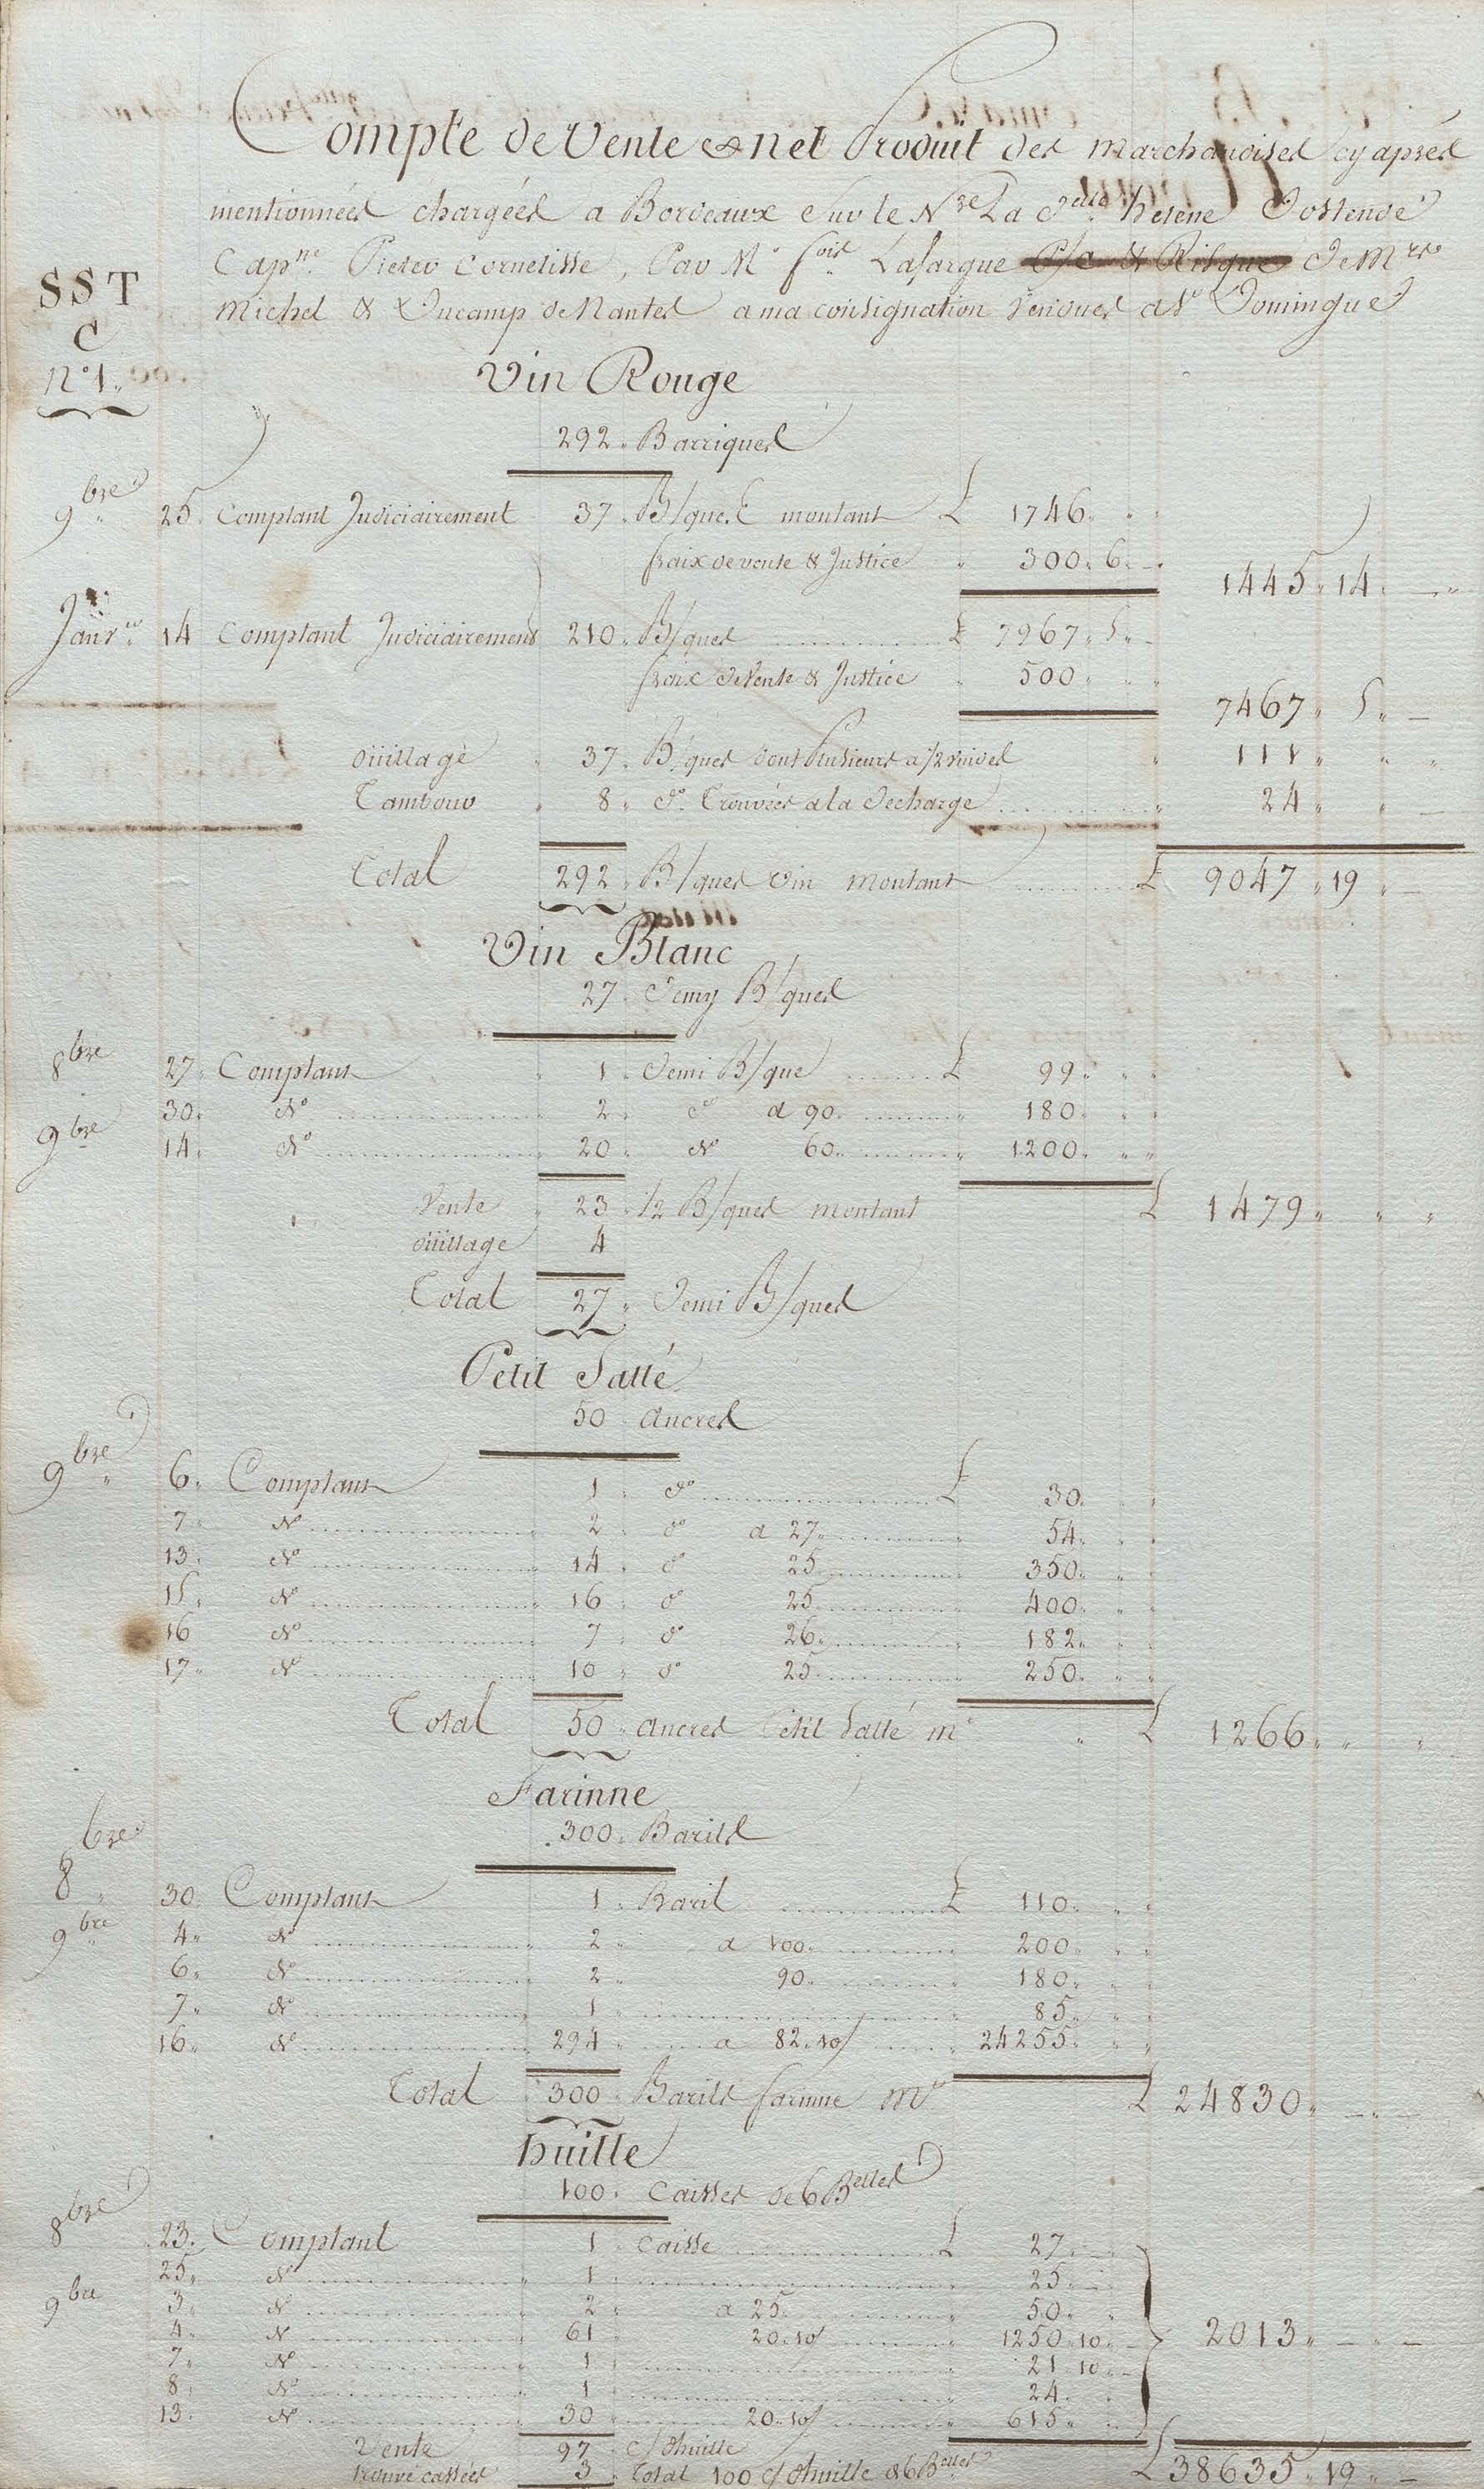 Compte de Vente & net Produit des marchandises cy aprés
mentionnées chargées a Bordeaux Sur le N.re La D.elle helene D'ostende
Cap.ne Pieter Cornelisse, Par M.r f.ois Lafargue P/C & Risque De M.rs
Michel & Ducamp de Nantes a ma consignation Vendues a S.t Domingue
SST
C
N.° 1.
Vin Rouge
292 Barriques
9bre 25. Comptant Judiciairement 37. B/ques montant £ 1746
fraix de vente & Justice 300. 6. 1445. 14
Janv.er 14 Comptant Judiciairement 210. B/ques £ 7967. 5.
fraix de Vente & Justice 500 7467. 5.
oüillage 37. B/ques dont Plusieurs a 1/2 vuides 111
Tambour 8. d.° Trouvées a la decharge 24
Total 292. B/ques Vin montant £ 9047. 19
Vin Blanc
27. demy B/ques
8bre 27. Comptant 1. demi B/que £ 99
30. d° 2. d° a 90 180
9bre 14. d° 20 d° 60 1200
Vente 23. 1/2 B/ques montant £ 1479
oüillage 4
Total 27. demi B/ques
Petit Sallé
50 ancres
9bre 6. Comptant 1. d° £ 30
7. d° 2. d° a 27 54
13. d° 14. d° 25 350
15. d° 16. d° 25 400
16 d° 7. d° 26 182
17. d° 10. d° 25 250
Total 50. ancres Petit Sallé m.t £ 1266
Farinne
300. Barils
8bre 30. Comptant 1. Baril £ 110
9bre 4. d° 2. a 100 200
6. d° 2. 90 180
7. d° 1. 85
16. d° 294. a 82.10/ 24255
Total 300. Barils farinne m.t £ 24830
huille
100. Caisses de 6 B.elles
8bre 23. Comptant 1. Caisse £ 27
25. d° 1. 25
9bre 3. d° 2. a 25 50
4. d° 61 20.10/ 1250. 10
7. d° 1. 21. 10
8. d° 1. 24
13. d° 30 20.10/ 615
2013
Vente 97. c/ d'huille
trouvé cassées 3. Total 100 c/ d'huille de 6 B.elles £ 38635. 19